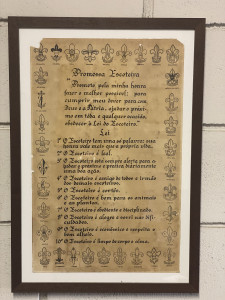 Promessa Escoteira
"Prometo pela minha honra
fazer o melhor possível; para
cumprir o meu dever para com
Deus e a Pátria, ajudar o próxi-
mo em toda e qualquer ocasião,
obedecer à Lei do Escoteiro."
Lei
1º O Escoteiro tem uma só palavra; sua
honra vale mais que a própria vida.
2º O Escoteiro é leal.
3º O Escoteiro está sempre alerta para a-
judar o próximo e pratica diariamente
uma boa ação.
4º O Escoteiro é amigo de todos e irmão
dos demais escoteiros.
5º O Escoteiro é cortês.
6º O Escoteiro é bom para os animais
e as plantas.
7º O Escoteiro é obediente e disciplinado.
8º O Escoteiro é alegre e sorri nas difi-
culdades.
9º O Escoteiro é econômico e respeita o
bem alheio.
10º O Escoteiro é limpo de corpo e alma.